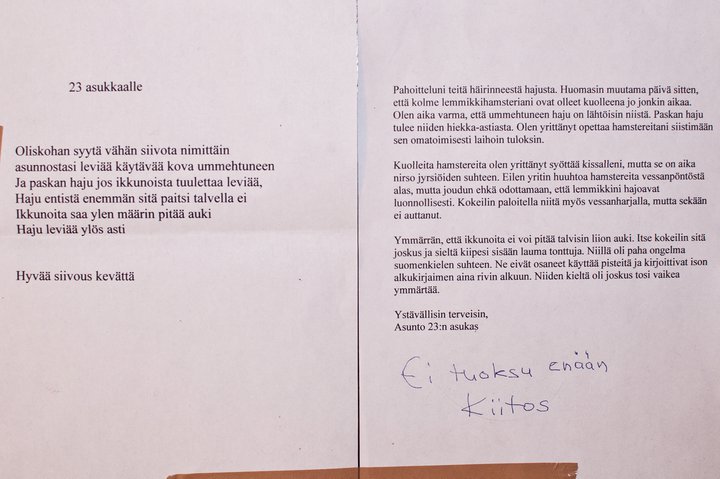 23 asukkaalle
Oliskohan syytä vähän siivota nimittäin
asunnostasi leviää käytävää kova ummehtuneen
Ja paskan haju jos ikkunoista tuulettaa leviää,
Haju entistä enemmän sitä paitsi talvella ei
Ikkunoita saa ylen määrin pitää auki
Haju leviää ylös asti
Hyvää siivous kevättä
Pahoitteluni teitä häirinneestä hajusta. Huomasin muutama päivä sitten,
että kolme lemmikkihamsteriani ovat olleet kuolleena jo jonkin aikaa.
Olen aika varma, että ummehtuneen haju on lähtöisin niistä. Paskan haju
tulee niiden hiekka-astiasta. Olen yrittänyt opettaa hamstereitani siistimään
sen omatoimisesti laihoin tuloksin.
Kuolleita hamstereita olen yrittänyt syöttää kissalleni, mutta se on aika
nirso jyrsiöiden suhteen. Eilen yritin huuhtoa hamstereita vessanpöntöstä
alas, mutta joudun ehkä odottamaan, että lemmikkini hajoavat
luonnollisesti. Kokeilin paloitella niitä myös vessanharjalla, mutta sekään
ei auttanut.
Ymmärrän, että ikkunoita ei voi pitää talvisin liion auki. Itse kokeilin sitä
joskus ja sieltä kiipesi sisään lauma tonttuja. Niillä oli paha ongelma
suomenkielen suhteen. Ne eivät osaneet käyttää pisteitä ja kirjoittivat ison
alkukirjaimen aina rivin alkuun. Niiden kieltä oli joskus tosi vaikea
ymmärtää.
Ystävällisin terveisin,
Asunto 23:n asukas
Ei tuoksu enään
Kiitos